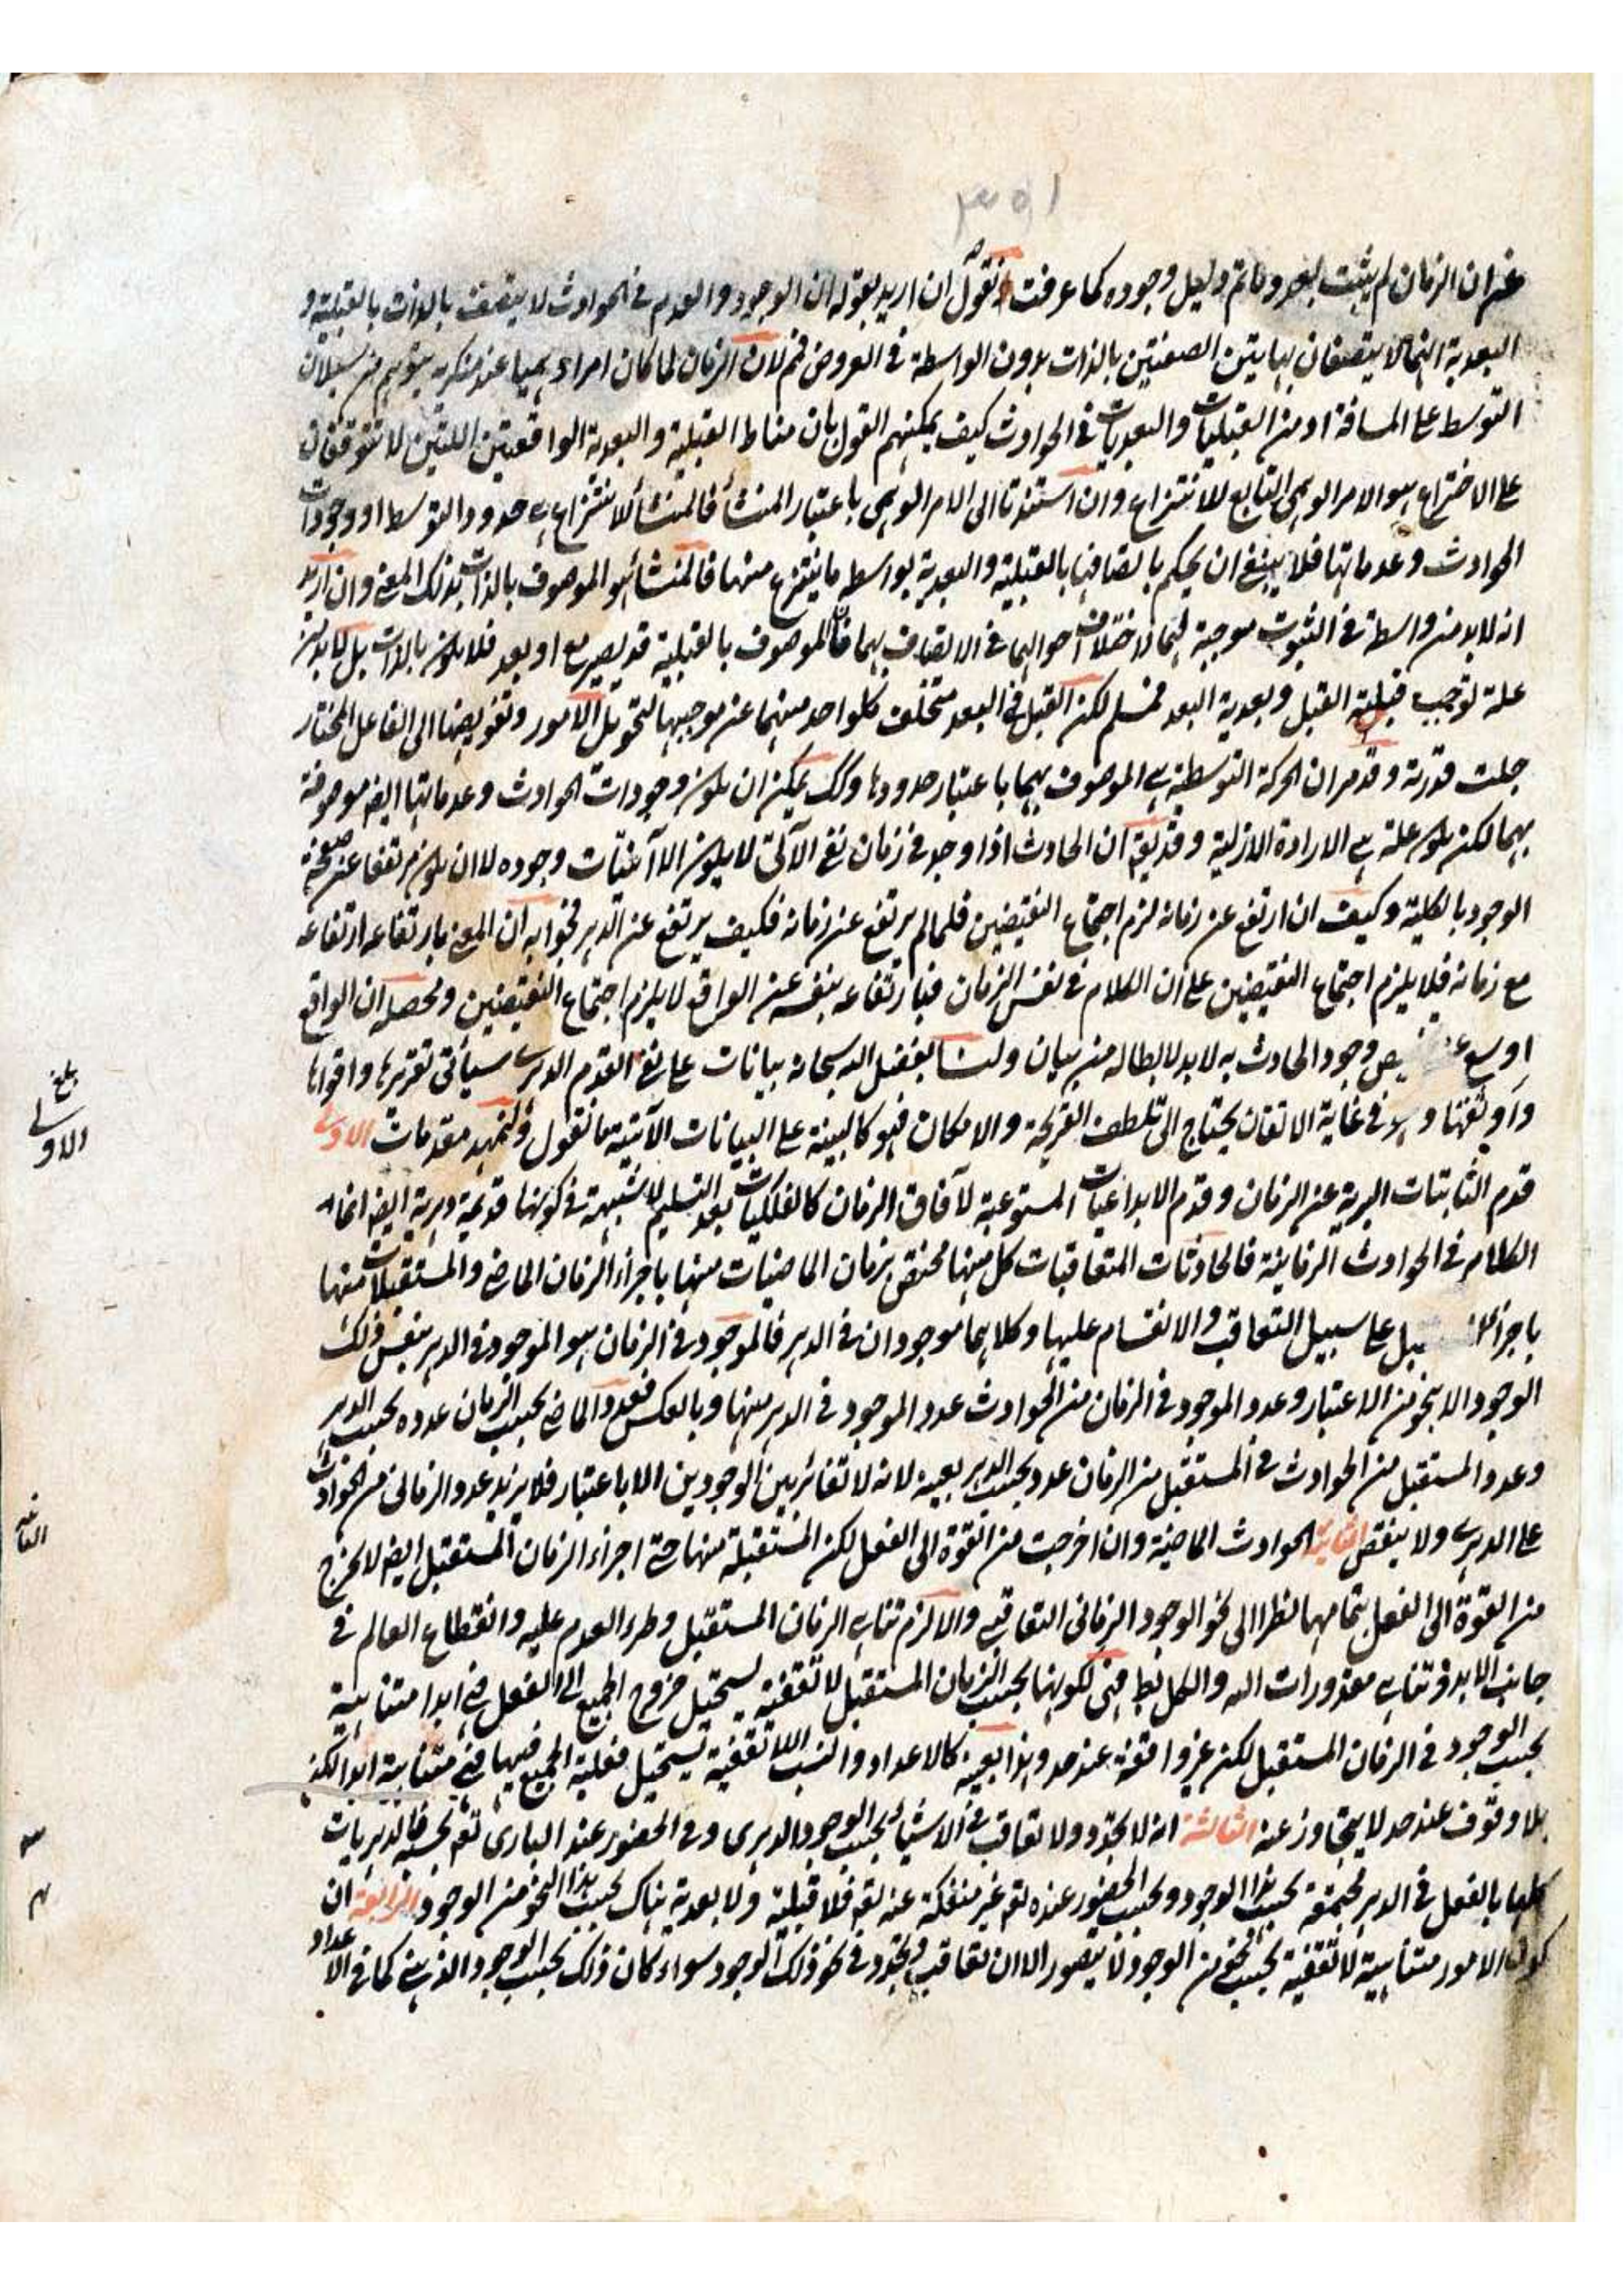 ٣٥١
ان الزمان لم يثبت بعد وما تم دليل وجوده كما عرفت فنقول ان اريد بقوله ان الوجود والعدم في الحوادث لا يتصف بالذات بالقبلية و
البعدية انهما لا يتصفان بهاتين الصفتين بالذات بدون الواسطة في العروض فم لان الزمان لما كان امرا وهميا عند منكريه يتوهم من سيلان
التوسط على المسافة او من القبليات والبعديات في الحوادث كيف يمكنهم القول بان مناط القبلية والبعدية الواقعتين اللتين لا تتوقفان
على الاختراع هو الامر الوهمي التابع للانتزاع وان استندتا الى الامر الوهمي باعتبار المنشأ فالمنشأ للانتزاع هي حدود التوسط او وجودات
الحوادث وعدماتها فلا ينبغي ان يحكم باتصافها بالقبلية والبعدية بواسطه ما ينتزع منها فالمنشأ هو الموصوف بالذات بذلك المعنى وان اريد
انه لابد من واسطة في الثبوت موجبة لهما لاختلاف احوالهما في الاتصاف بهما فان الموصوف بالقبلية قد يصير مع او بعد فلا يكون بالذات بل لابد من
علة توجب قبلية القبل وبعدية البعد فمسلم لكن القبل في البعد متخلف كلواحد منهما عن موجبها لتحويل الامور وتفويضها الى الفاعل المختار
جلت قدرته وقد مر ان الحركة التوسطية هي الموصوف بهما باعتبار حدودها وكك يمكن ان يكون وجودات الحوادث وعدماتها ايض موصوفة
بهما لكن يكون علة هي الارادة الازلية وقد يق ان الحادث اذا وجد في زمان ففي الآتي لا يكون الا انبتات وجوده لا ان يكون مرتفعا عن صحة
الوجود بالكلية وكيف ان ارتفع عن زمانه لزم اجتماع النقيضين فلما لم يرتفع عن زمانه فكيف يرتفع عن الدهر فجوابه ان المعنى بارتفاعه ارتفاعه
مع زمانه فلا يلزم اجتماع النقيضين على ان الكلام في نفس الزمان فبارتفاعه بنفسه عن الواقع لا يلزم اجتماع النقيضين ومحصله ان الواقع
اوسع وجود الحادث به لابد لابطاله من بيان ولنا بفضل الله سبحانه بيانات على نفي القدم الدهري سيأتي تقريرها واقواها
واوثقها وهو في غاية الاتقان يحتاج الى تلطف القريحة والامكان فهو كالبينة على البيانات الآتية ما نقول ولنمهد مقدمات الاولى
قدم الثابتات البرية عن الزمان وقدم الابداعيات المستوعبة لآفاق الزمان كالفلكيات بعد التسليم لا شبهة في كونها قديمة دهرية ايض انما
الكلام في الحوادث الزمانية فالحادثات المتعاقبات كل منها مختص بزمان الماضيات منها باجزاء الزمان الماضي والمستقبلات منها
باجزاء على سبيل التعاقب والانقسام عليها وكلاهما موجودان في الدهر فالموجود في الزمان هو الموجود في الدهر بنفس ذلك
الوجود الا بنحو من الاعتبار وعدد الموجود في الزمان من الحوادث عدد الموجود في الدهر منها وبالعكس فعدد الماضي بحسب الزمان عدده بحسب الدهر
وعدد المستقبل من الحوادث في المستقبل من الزمان عدد بحسب الدهر بعينه لانه لا تغائر بين الوجودين الا باعتبار فلا يزيد عدد الزماني من الحوادث
على الدهري ولا ينقص الثانية الحوادث الماضية وان اخرجت من القوة الى الفعل لكن المستقبلة منها حتى اجزاء الزمان المستقبل ايض لا يخرج
من القوة الى الفعل بتمامها نظرا الى نحو الوجود الزماني التعاقبي والا لزم تناهي الزمان المستقبل وطرء العدم عليه وانقطاع العالم في
جانب الابد وتناهي مقدورات الله والكل بط فهي لكونها بحسب الزمان المستقبل لا تقفية يستحيل خروج الجميع الى الفعل فهي ابدا متناهية
بحسب الوجود في الزمان المستقبل لكن غير واقفة عند حد وهذا بعينه كالاعداد والنسب اللا تقفية يستحيل فعلية الجميع فيها فهي متناهية ابدا لكن
بلا وقوف عند حد لا يتجاوز عنه الثالثة انه لا تجدد ولا تعاقب في الاشياء بحسب الوجود الدهري وفي الحضور عند الباري تعم بحسبه فالدهريات
كلها بالفعل في الدهر مجتمعة بحسب هذا الوجود وبحسب الحضور عنده تعم غير منفكة عنه تعم فلا قبلية ولا بعدية هناك بحسب هذا النحو من الوجود الرابعة ان
كون الامور متناهية لا تقفية بحسب نحو من الوجود لا يتصور الا ان تعاقب وتجدد في نحو ذلك الوجود سواء كان ذلك بحسب الوجود الذهني كما في الاعداد
بلغ
الاولى
الثانيه
٣
٤